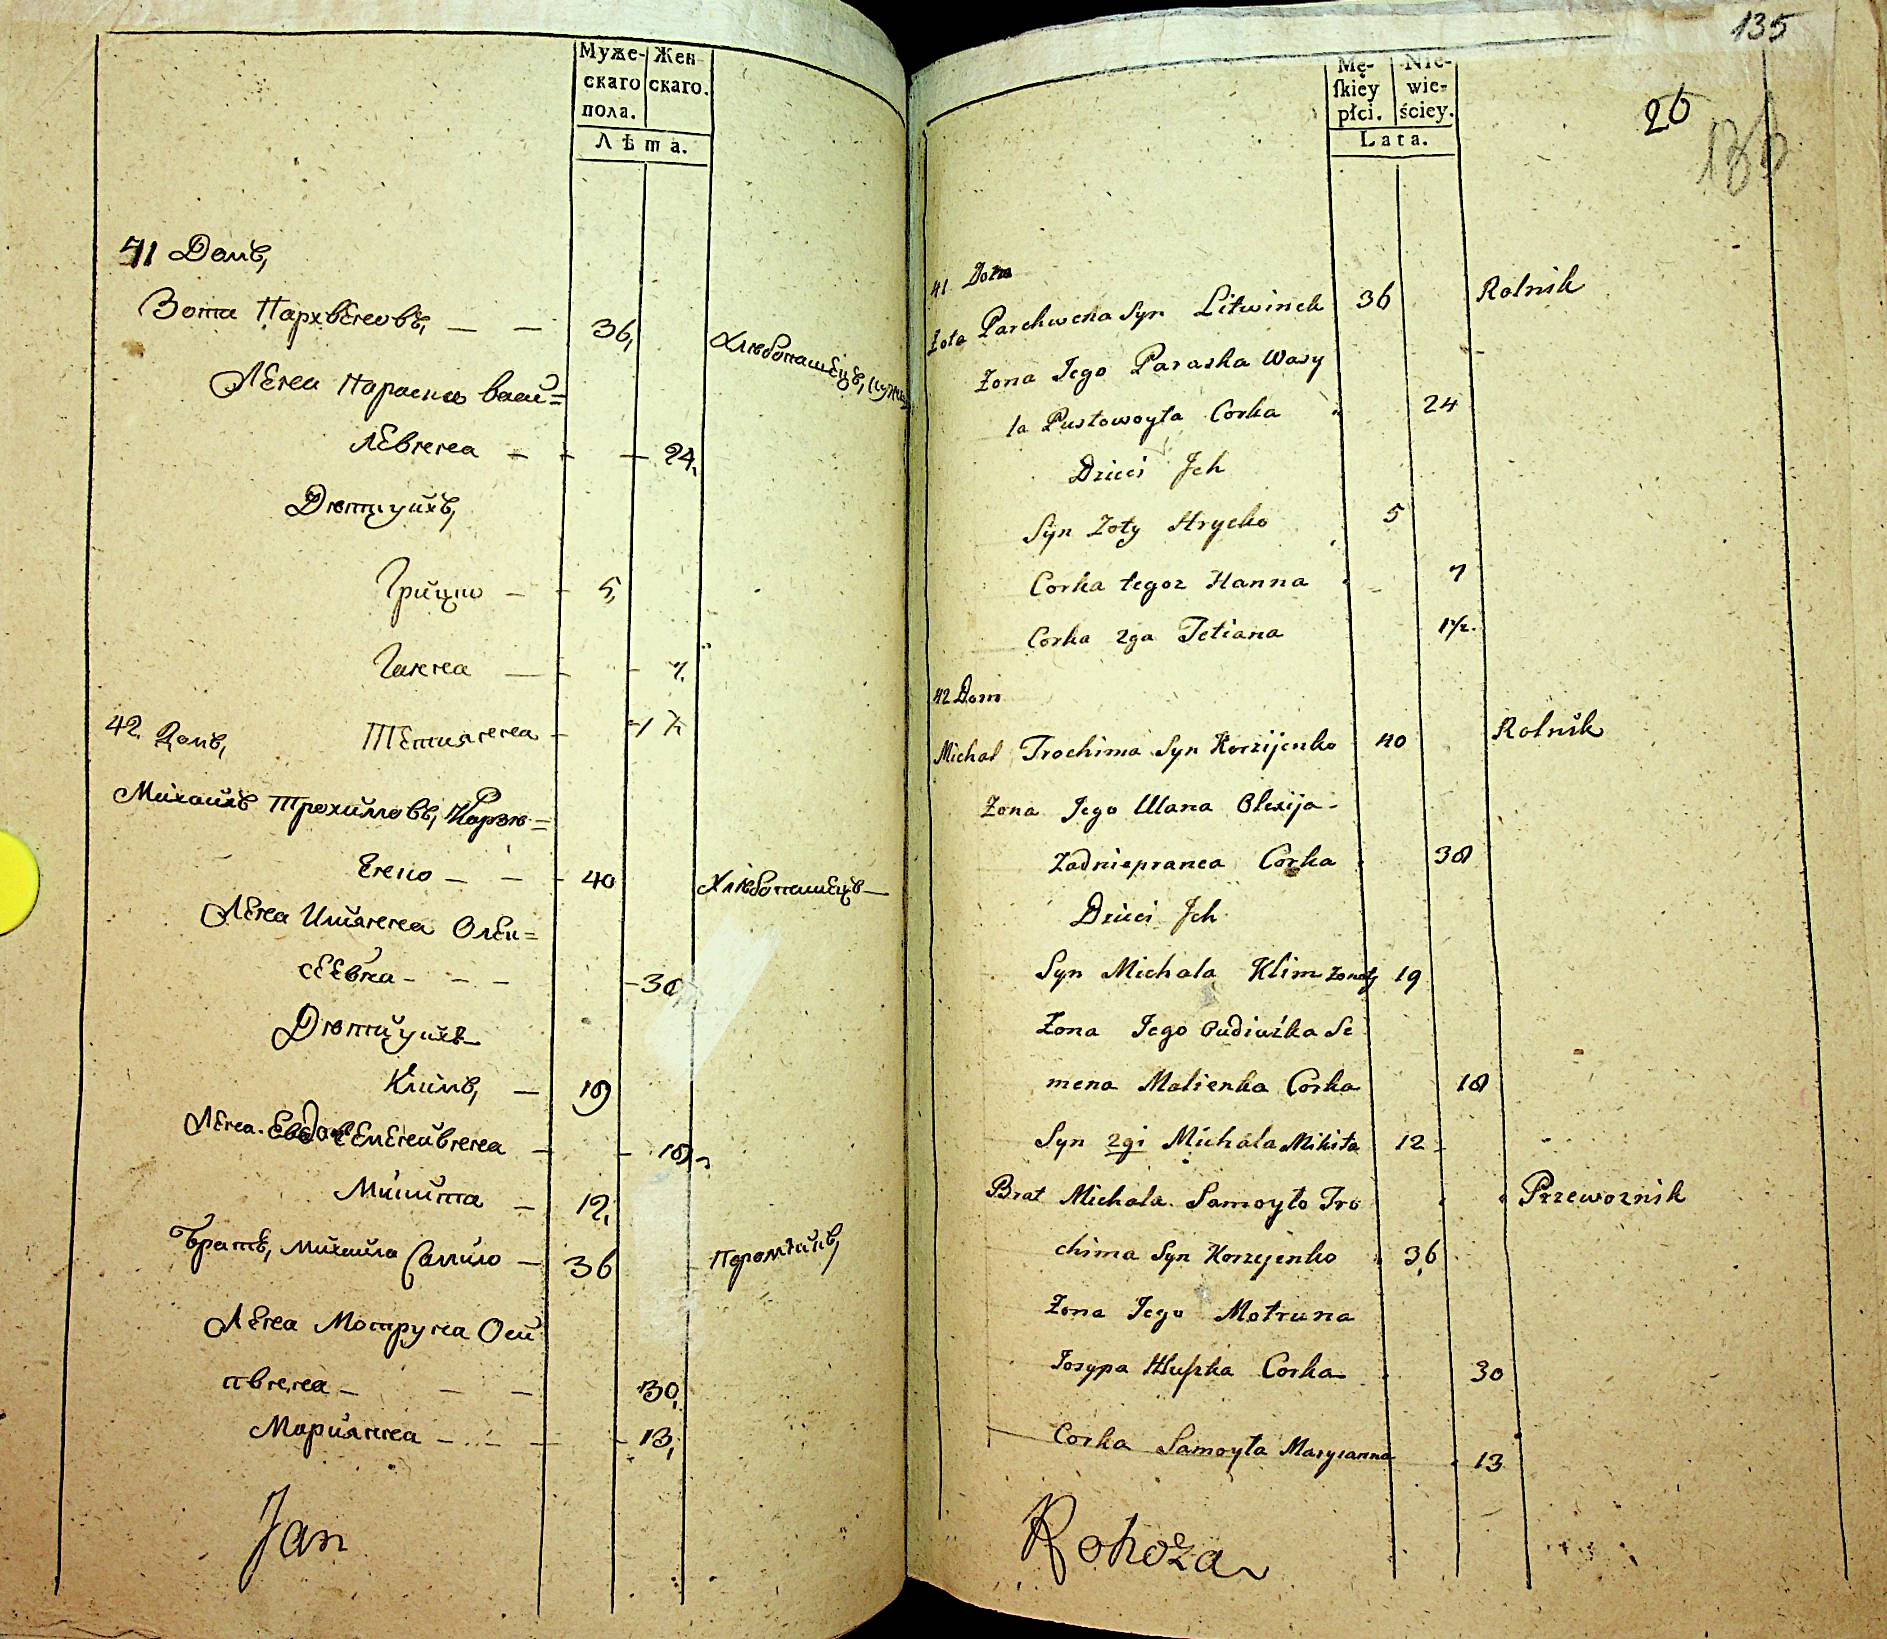 Муже-
скаго
пола.
Жен
скаго.
Лѣта.
41 Домъ,
Зота Пархвеновъ, — — 36,
Хлебопашецъ,
Жена Параска Васи=
левгена — — — 24,
Дютцуихъ,
Грицко — — 5,
Ганна — — — 7.
42 Домъ,
Тетиянна — — 1 ½
Михаилъ Трохимовъ, Корзю=
Хлебопашецъ —
Енко — — — 40
Жена Улиянна Олек=
сеевна — — — 38
Дютцуихъ
Климъ, — 19
Жена Евдо Семенивгена — — 18,
Микита — 12,
Братъ, Михаила Самило — 36
Паромщикъ,
Жена Мотруна Оси
пвгена — — — 30,
Мариянна — — — 13,
Jan
135
26
136
Mę-
ſkiey
płci.
Nie-
wie-
ściey.
Lata.
41 Dom
Zota Parchwena Syn Litwinek 36 Rolnik
Zona Jego Paraska Wasy
la Pustowoyta Corka 24
Dzieci Jch
Syn Zoty Hrycko 5
Corka tegoz Hanna 7
Corka 2ga Tetiana 1½.
42 Dom
Michal Trochima Syn Korzijenko 40 Rolnik
Zona Jego Ulana Olexija-
Zadniepranca Corka 38
Dzieci Jch
Syn Michala Klim zonaty 19
Zona Jego Oudiużka Se
mena Malienka Corka 18
Syn 2gi Michala Mikita 12
Brat Michala Samoyło Tro Przewoznik
chima Syn Korzyenko 36
Zona Jego Motruna
Josypa Corka 30
Corka Samoyła Marysanna 13
Rohoza